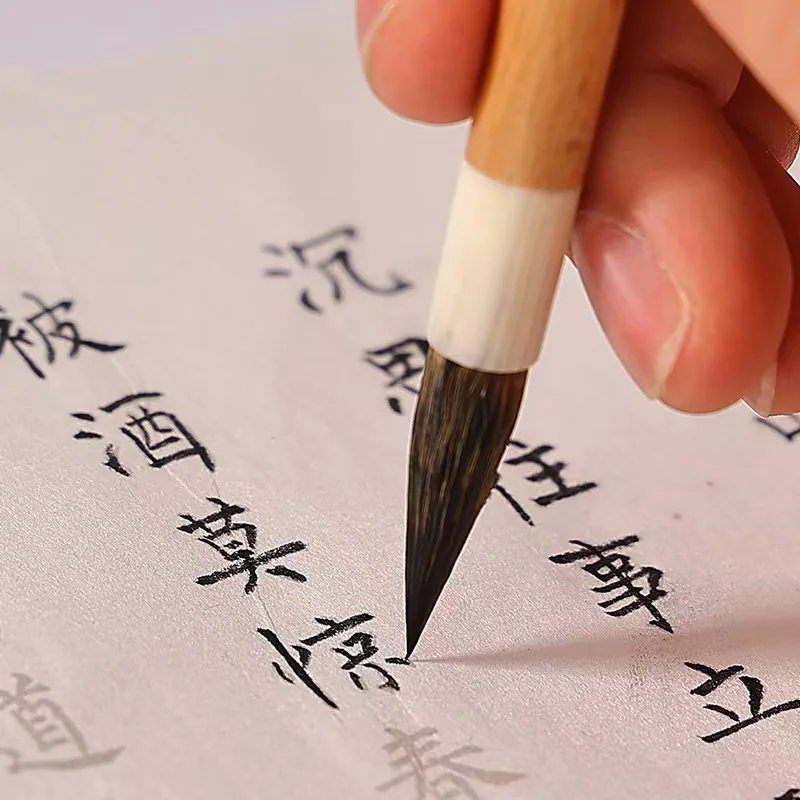 沉思往事立
被酒莫惊春
道